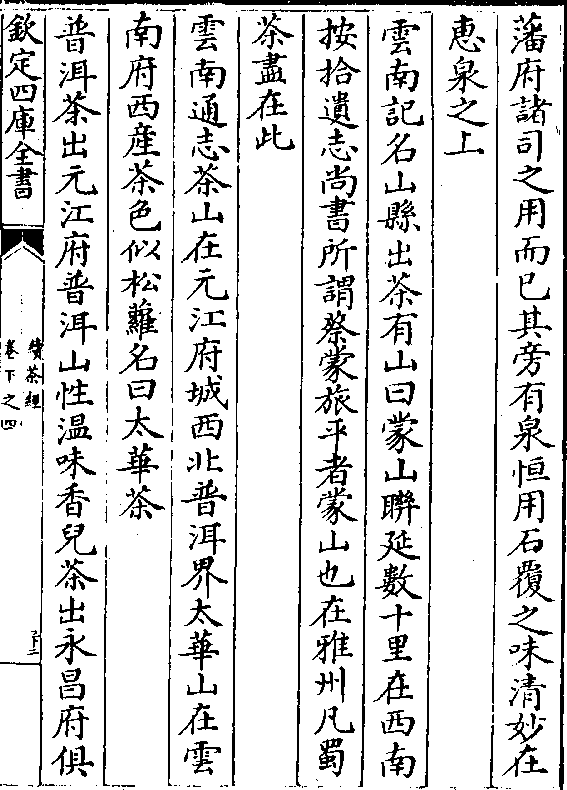 藩府諸司之用而已其旁有泉恒用石覆之味清妙在
惠泉之上
雲南記名山縣出茶有山曰蒙山聨延數十里在西南
按拾遺志尚書所謂蔡蒙旅平者蒙山也在雅州凡蜀
茶盡在此
雲南通志茶山在元江府城西北普洱界太華山在雲
南府西産茶色似松蘿名曰太華茶
普洱茶出元江府普洱山性温味香兒茶出永昌府俱
欽定四庫全書
續茶經
卷下之四